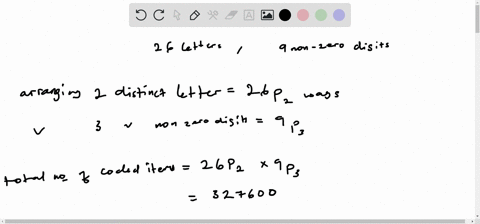 26 letters , 9 non-zero digits
arranging 2 distinct letter = 26P2 ways
" 3 " non zero digit = 9P3
total no of coded items = 26P2 × 9P3
= 327600